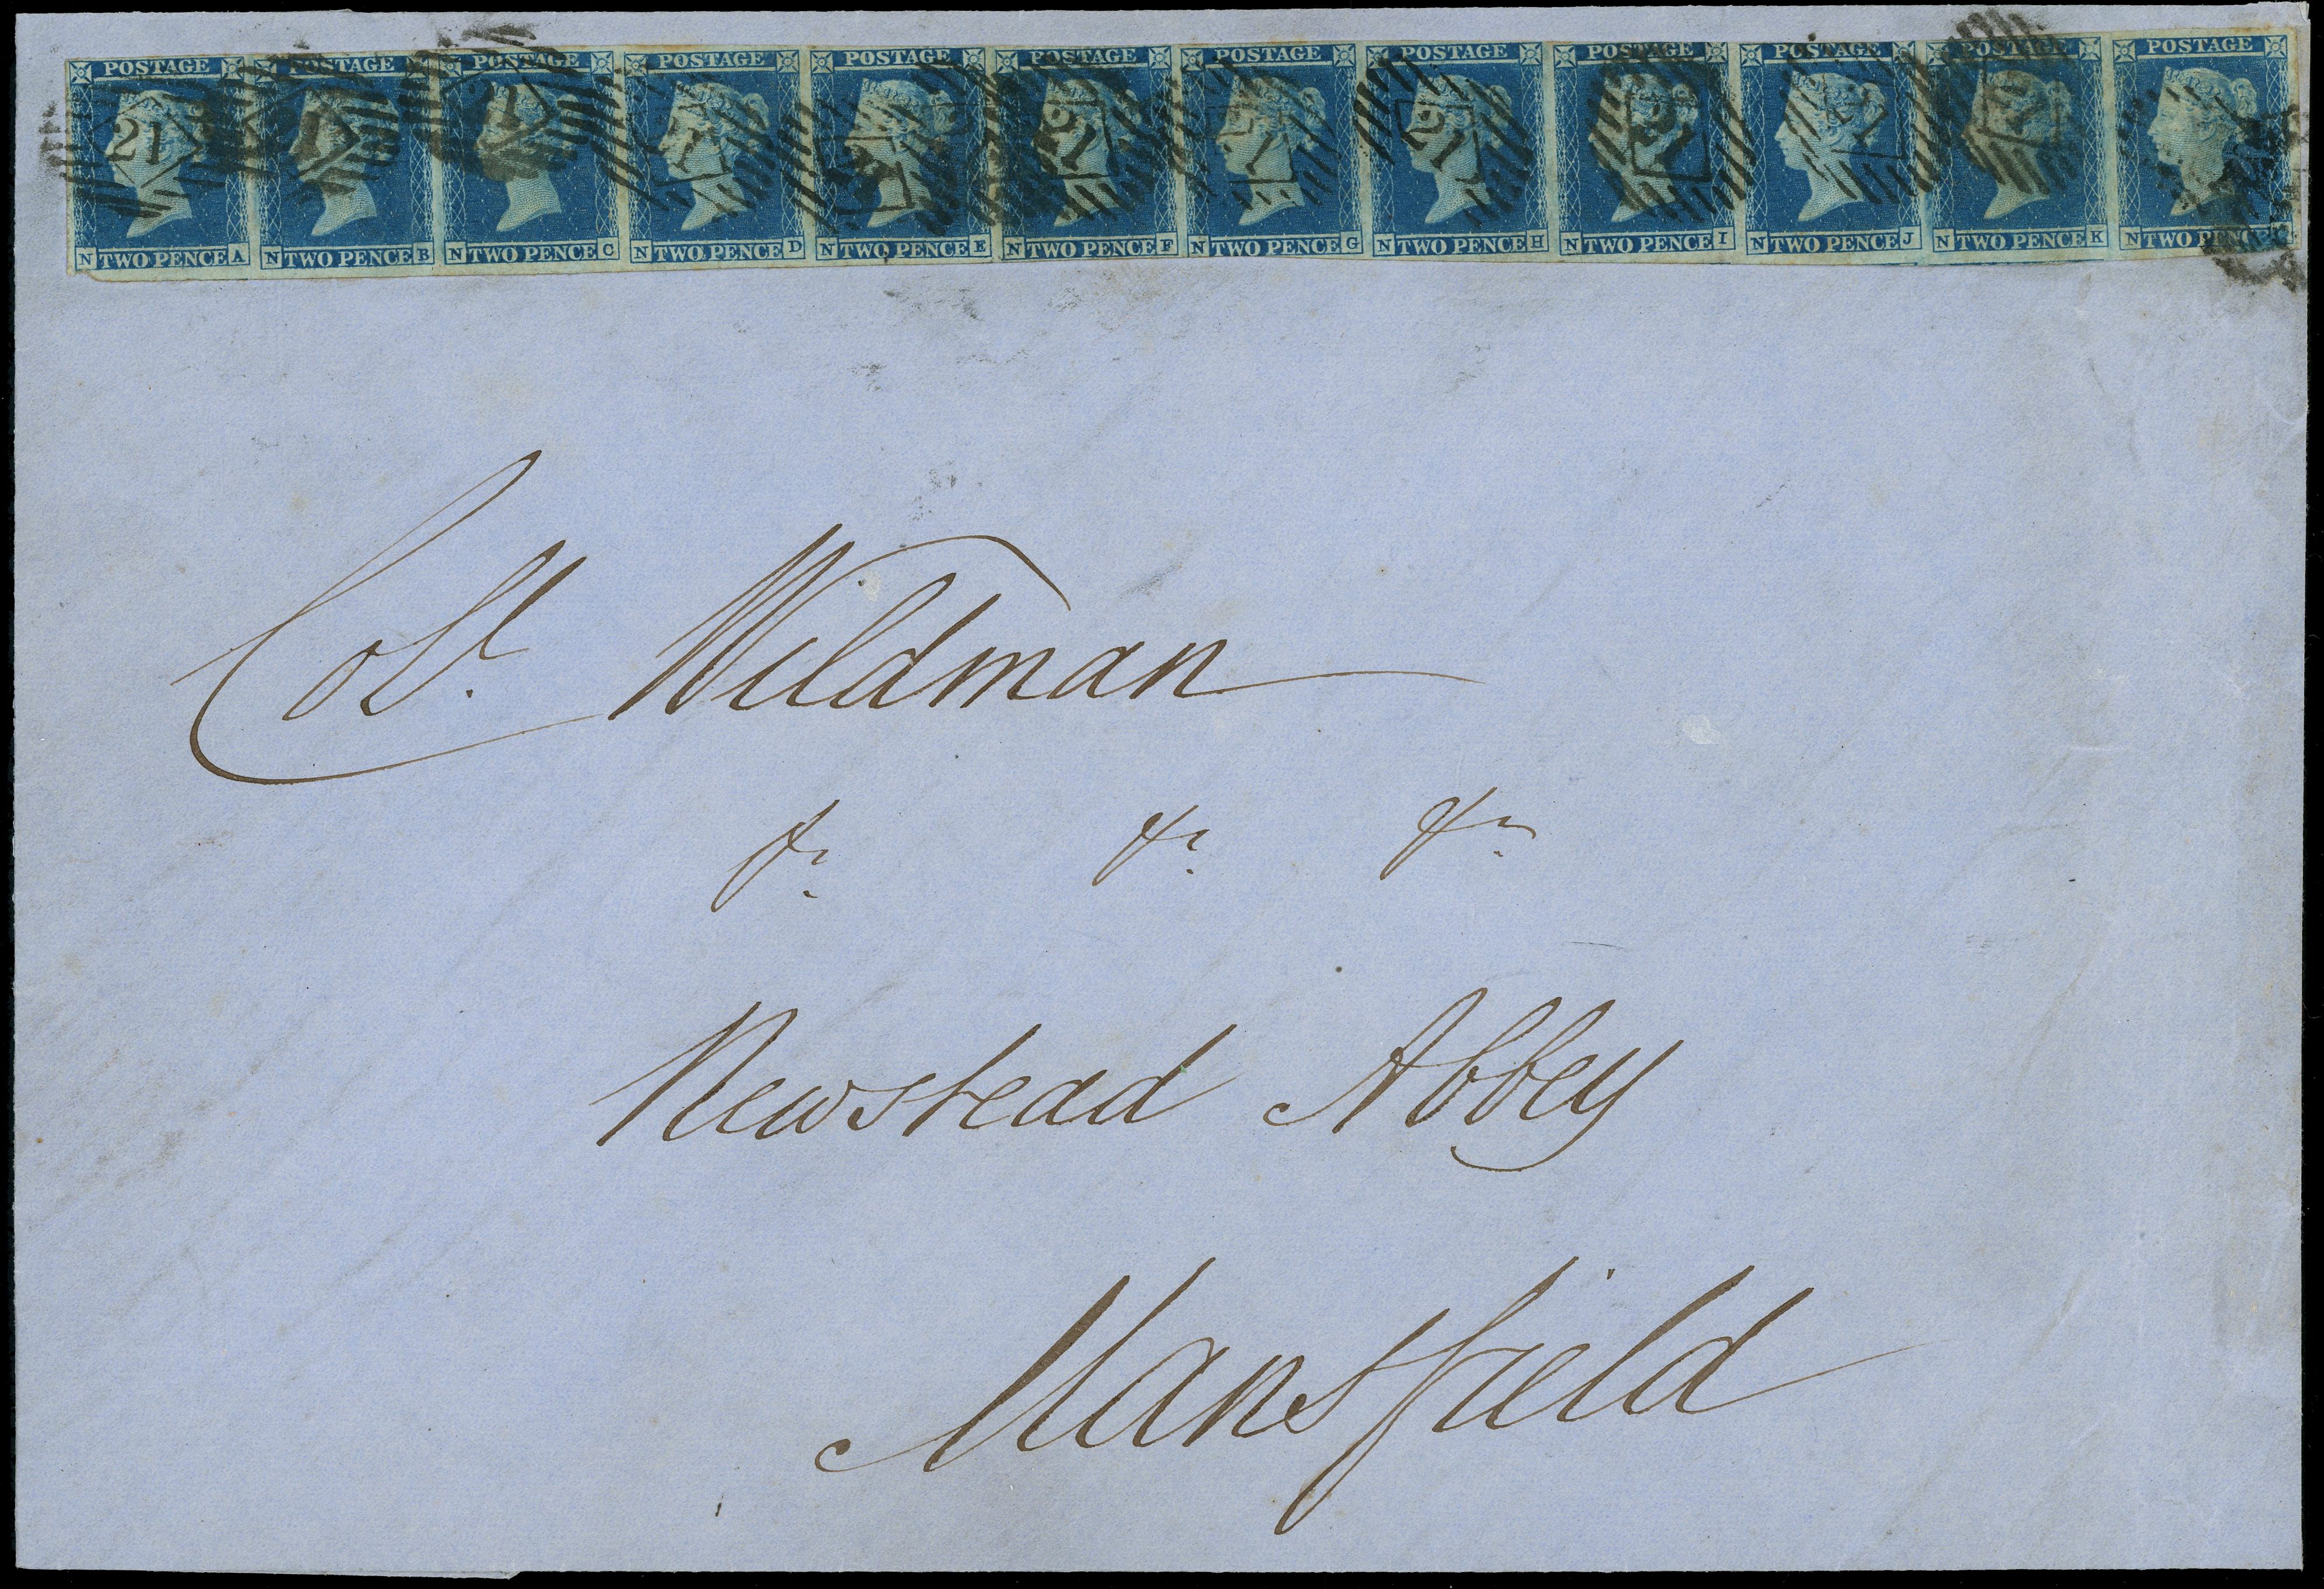 POSTAGE POSTAGE POSTAGE POSTAGE POSTAGE POSTAGE POSTAGE POSTAGE POSTAGE POSTAGE POSTAGE POSTAGE
21 1 1 1 21 1 21 21
N TWO PENCE A N TWO PENCE B N TWO PENCE C N TWO PENCE D N TWO PENCE E N TWO PENCE F N TWO PENCE G N TWO PENCE H N TWO PENCE I N TWO PENCE J N TWO PENCE K N TWO PENCE
Coll. Wildman
&c. &c. &c.
Newstead Abbey
Mansfield